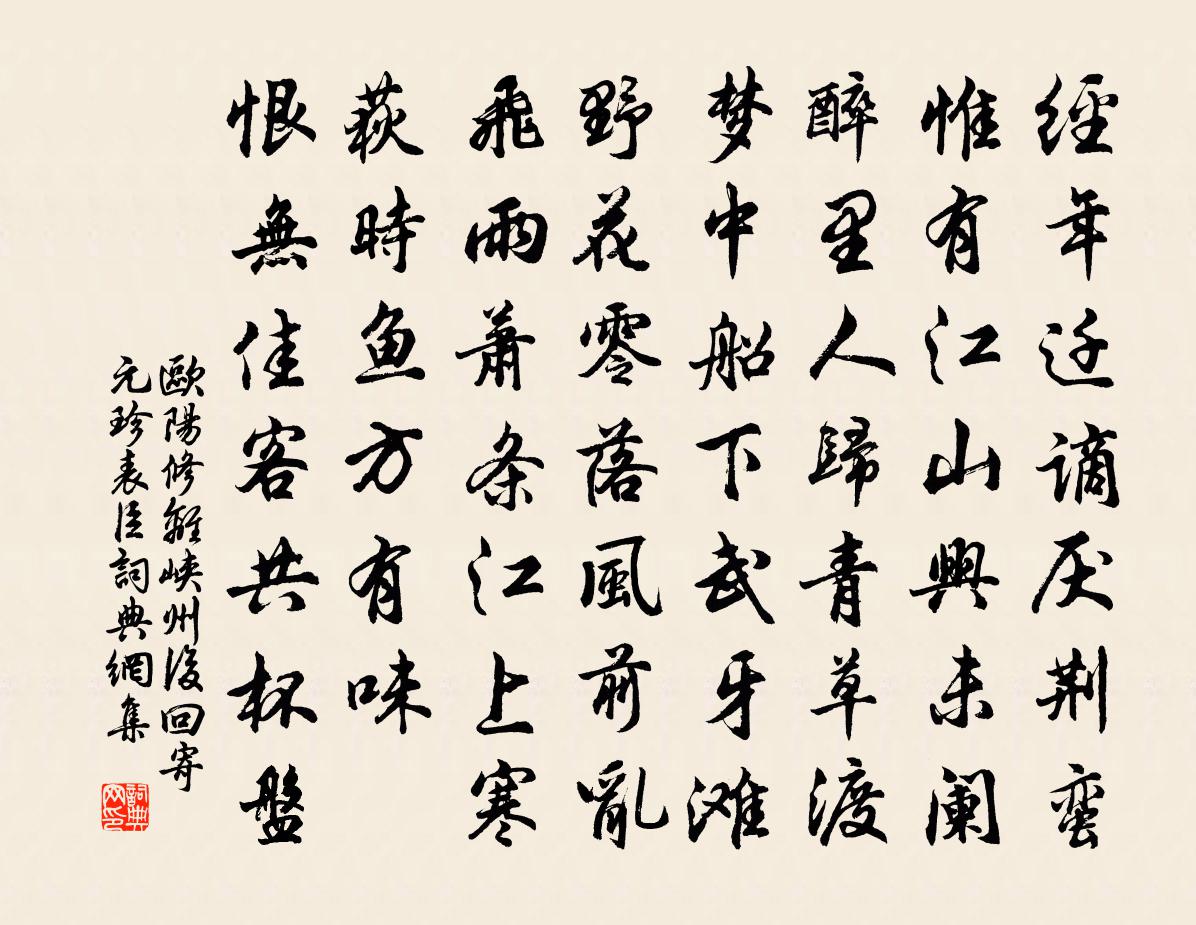 經年迁謫厌荆蛮
惟有江山興未阑
醉里人歸青草渡
梦中船下武牙滩
野花零落風前亂
飛雨蕭条江上寒
荻時鱼方有味
恨無佳客共杯盤
歐陽修離峽州後回寄
元珍表臣詞典網集
詞典
网印